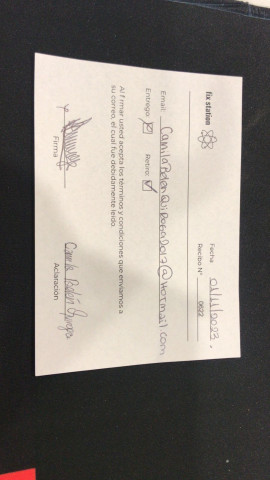 fix station
Fecha: 01/11/2023.
Recibo N° 0622
Email: CamilaBelonQuiroga2017@hotmail.com
Entrega: Retiro:
Al firmar usted acepta los términos y condiciones que enviamos a
su correo, el cual fue debidamente leído.
Camila Belén Quiroga
Firma Aclaración